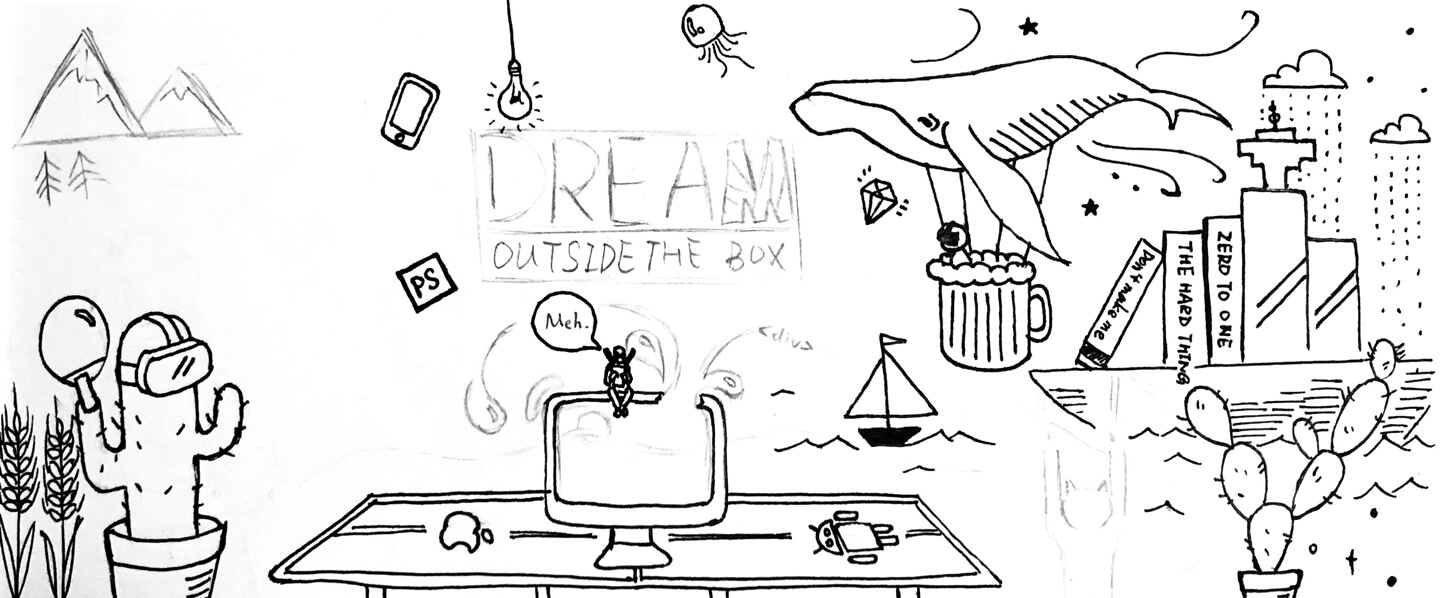 DREAM
OUTSIDE THE BOX
PS
Meh.
<div>
Don't make me
THE HARD THING
ZERO TO ONE